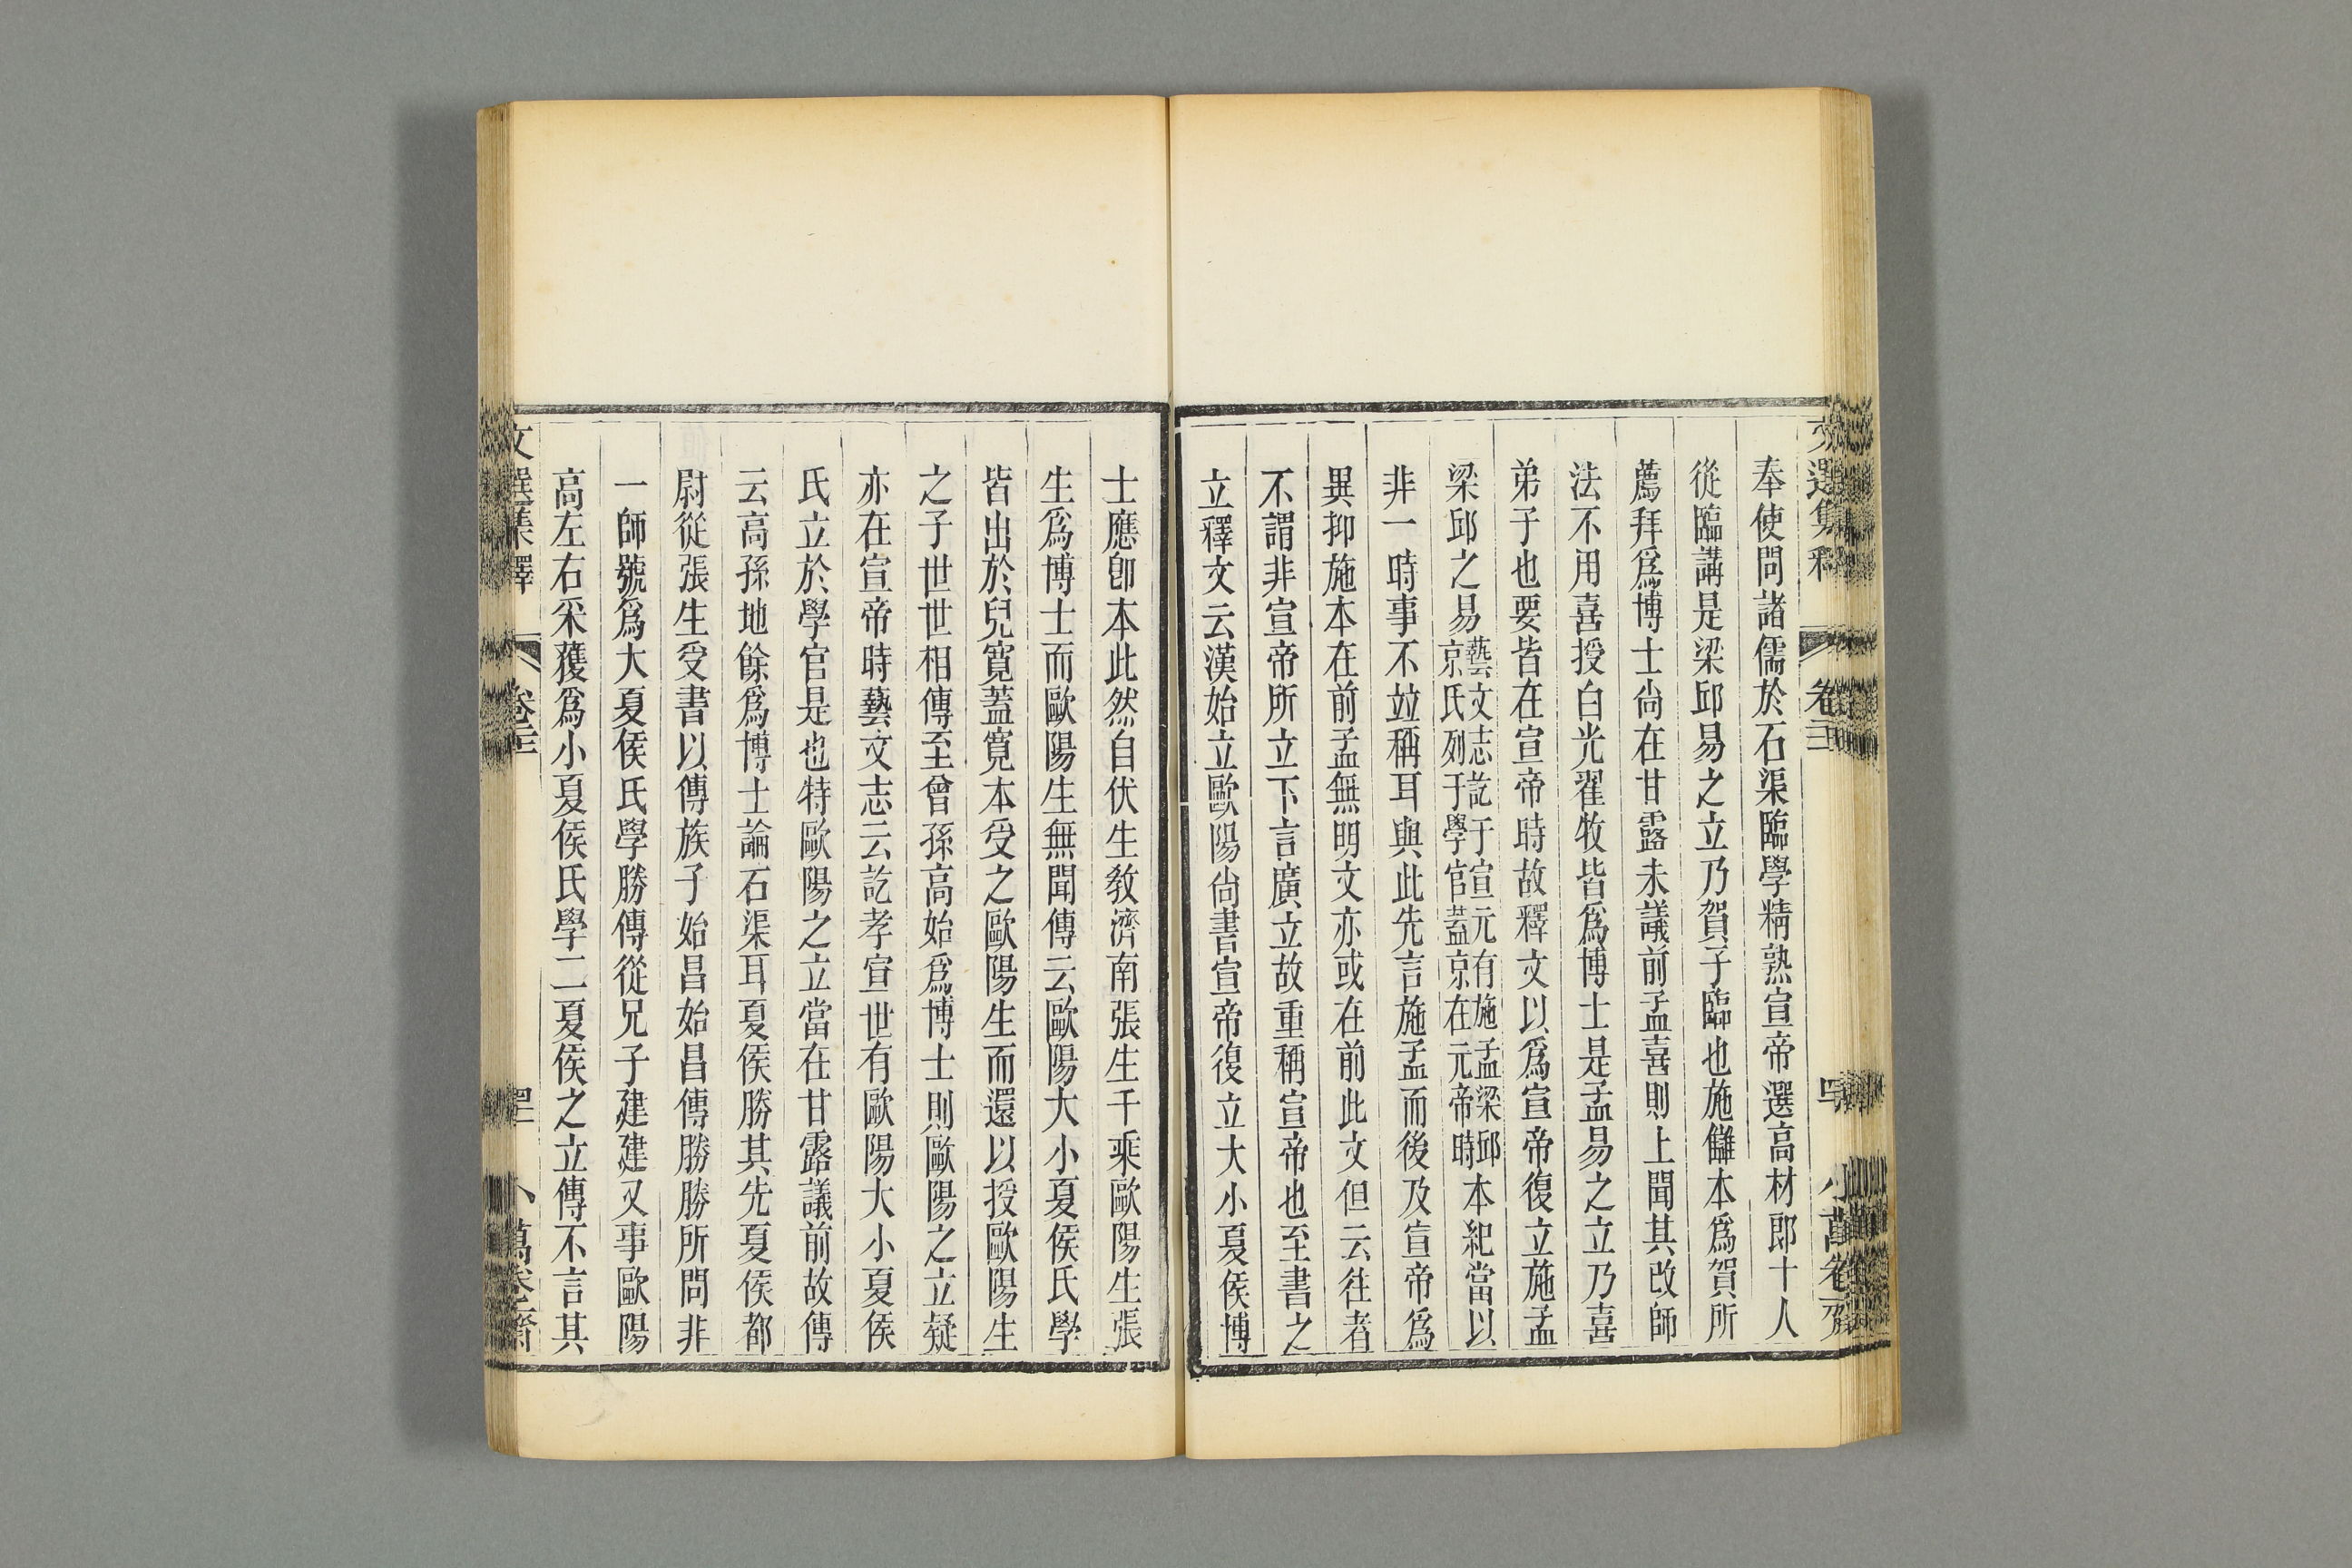 奉使問諸儒於石渠臨學精熟宣帝選高材郎十人
從臨講是梁邱易之立乃賀子臨也施讎本爲賀所
薦拜爲博士尙在甘露未議前孟喜則上聞其改師
法不用喜授白光翟牧皆爲博士是孟易之立乃喜
弟子也要皆在宣帝時故釋文以爲宣帝復立施孟
梁邱之易藝文志訖于宣元有施孟梁邱京氏列于學官蓋京在元帝時本紀當以
非一時事不竝稱耳與此先言施孟而後及宣帝爲
異抑施本在前孟無明文亦或在前此文但云往者
不謂非宣帝所立下言廣立故重稱宣帝也至書之
立釋文云漢始立歐陽尙書宣帝復立大小夏侯博
士應卽本此然自伏生敎濟南張生千乘歐陽生張
生爲博士而歐陽生無聞傳云歐陽大小夏侯氏學
皆出於兒寬蓋寬本受之歐陽生而還以授歐陽生
之子世世相傳至曾孫高始爲博士則歐陽之立疑
亦在宣帝時藝文志云訖孝宣世有歐陽大小夏侯
氏立於學官是也特歐陽之立當在甘露議前故傳
云高孫地餘爲博士論石渠耳夏侯勝其先夏侯都
尉從張生受書以傳族子始昌始昌傳勝勝所問非
一師號爲大夏侯氏學勝傳從兄子建建又事歐陽
高左右采獲爲小夏侯氏學二夏侯之立傳不言其
文選集釋